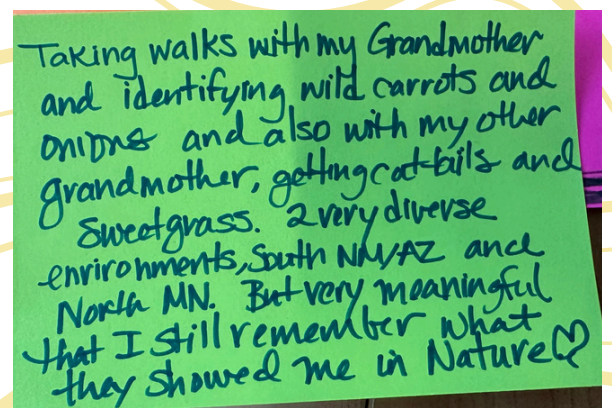 Taking walks with my Grandmother
and identifying wild carrots and
onions and also with my other
grandmother, getting cat-tails and
Sweetgrass. 2 very diverse
environments, South NM/AZ and
North MN. But very meaningful
that I still remember what
they showed me in Nature♡